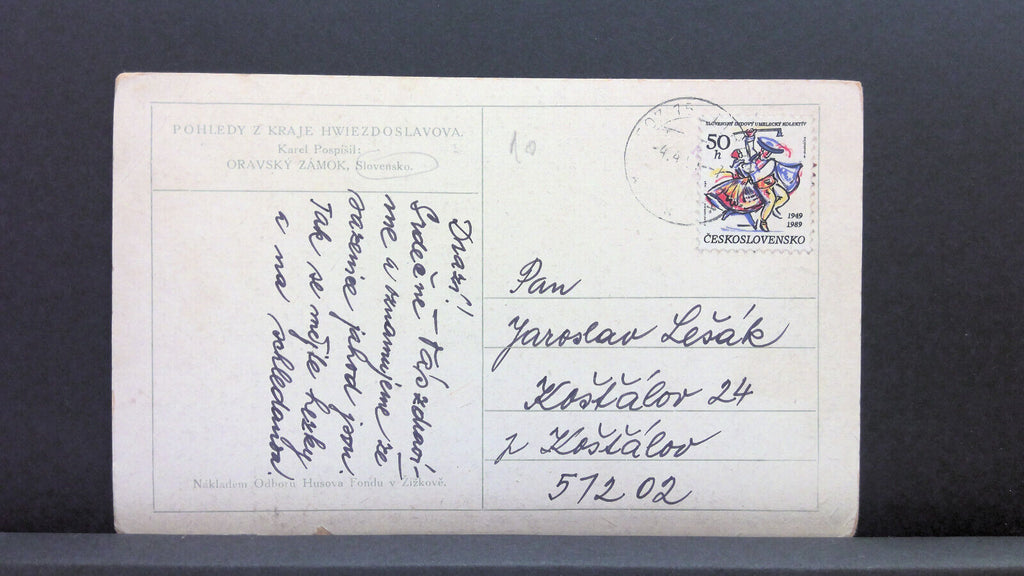 POHLEDY Z KRAJE HWIEZDOSLAVOVA.
Karel Pospíšil:
ORAVSKÝ ZÁMOK, Slovensko.
Drazí!
Srdečně Vás zdraví-
me a oznamujeme že
sazenice jahod jsou.
Tak se mějte hezky
a na shledanou.
Nákladem Odboru Husova Fondu v Žižkově.
10
SLOVENSKÝ ĽUDOVÝ UMELECKÝ KOLEKTÍV
50
h
1949
1989
ČESKOSLOVENSKO
Pan
Jaroslav Lešák
Košťálov 24
p Košťálov
512 02